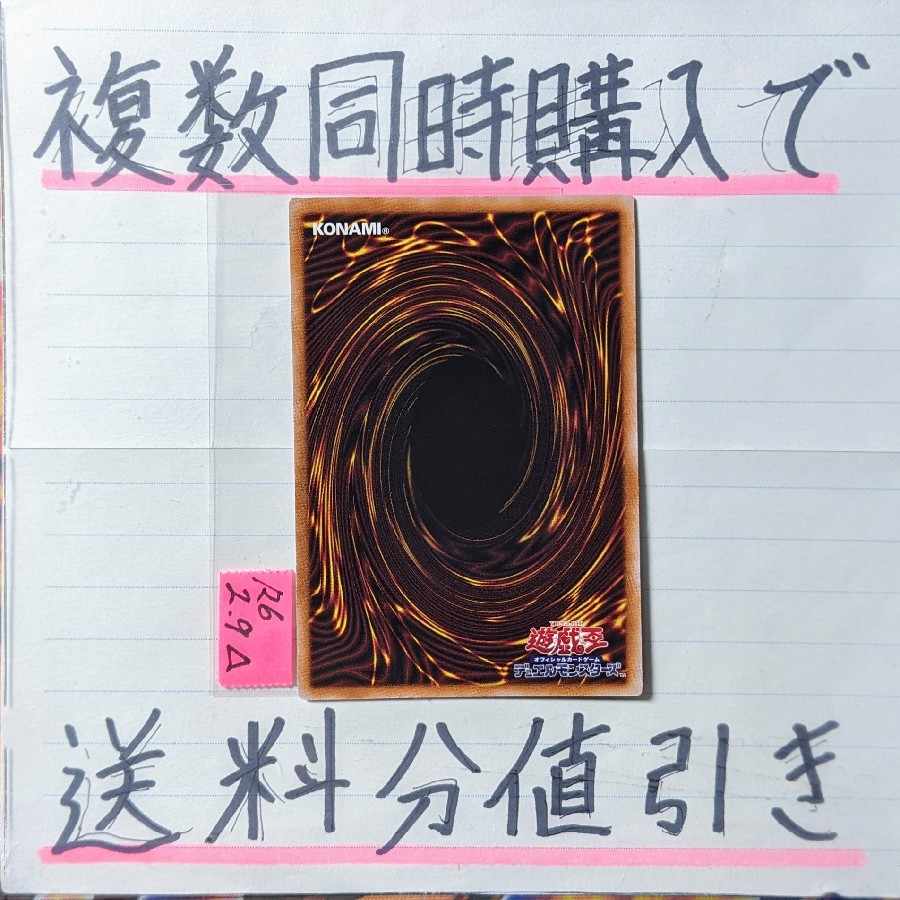 複数同時購入で
KONAMI®
R6
2.9△
遊戯王
オフィシャルカードゲーム
デュエルモンスターズ™
送料分値引き